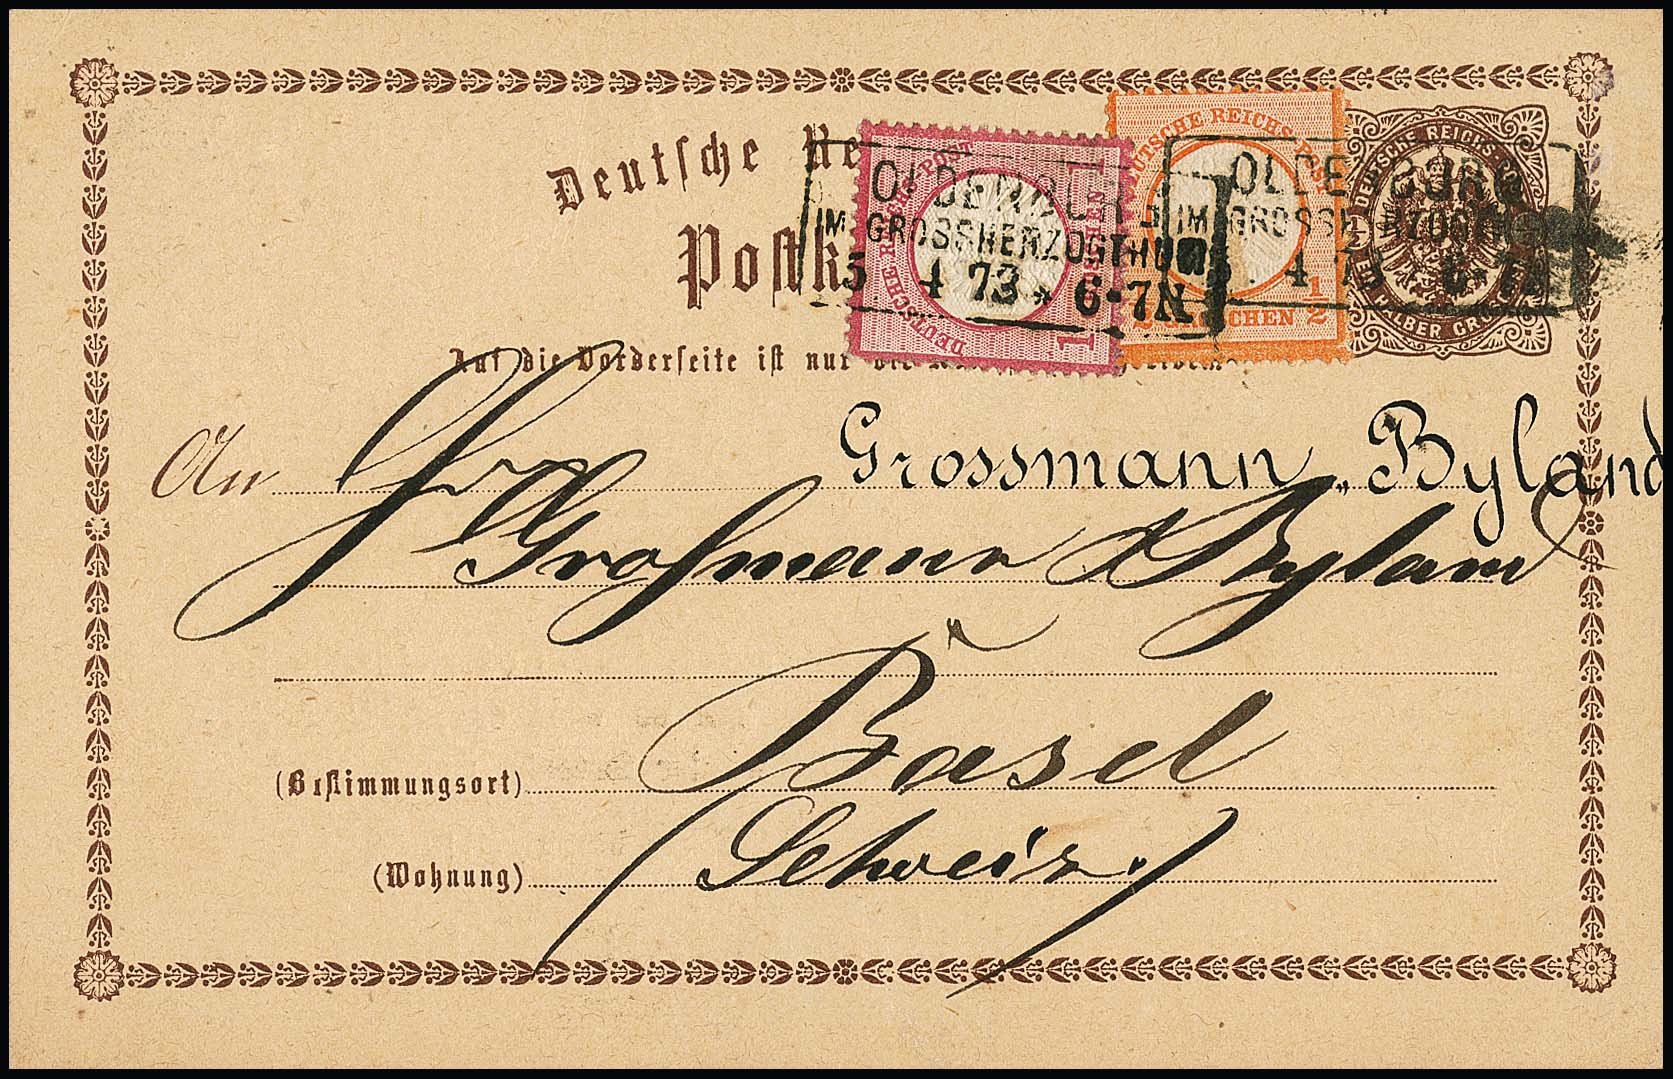 Deutsche Re
Postk
DEUTSCHE REICHS-POST
1 GROSCHEN 1
DEUTSCHE REICHS-POST
1/2 GROSCHEN 1/2
DEUTSCHE REICHS-POST
EIN HALBER GROSCHEN
OLDENBURG
IM GROSSHERZOGTHUM
5 4 73 * 6-7N
OLDENBURG
IM GROSSHERZOGTHUM
5 4 73 * 6-7N
Auf die Vorderseite ist nur die
An
Grossmann, Byland
Hr
Großmann & Byland
(Bestimmungsort) Basel
(Wohnung) (Schweiz.)